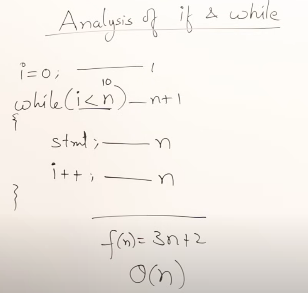 Analysis of if & while
i=0; ——— 1
10
while(i<n)—n+1
{
stmt; —— n
i++; —— n
}
f(n)= 3n+2
O(n)